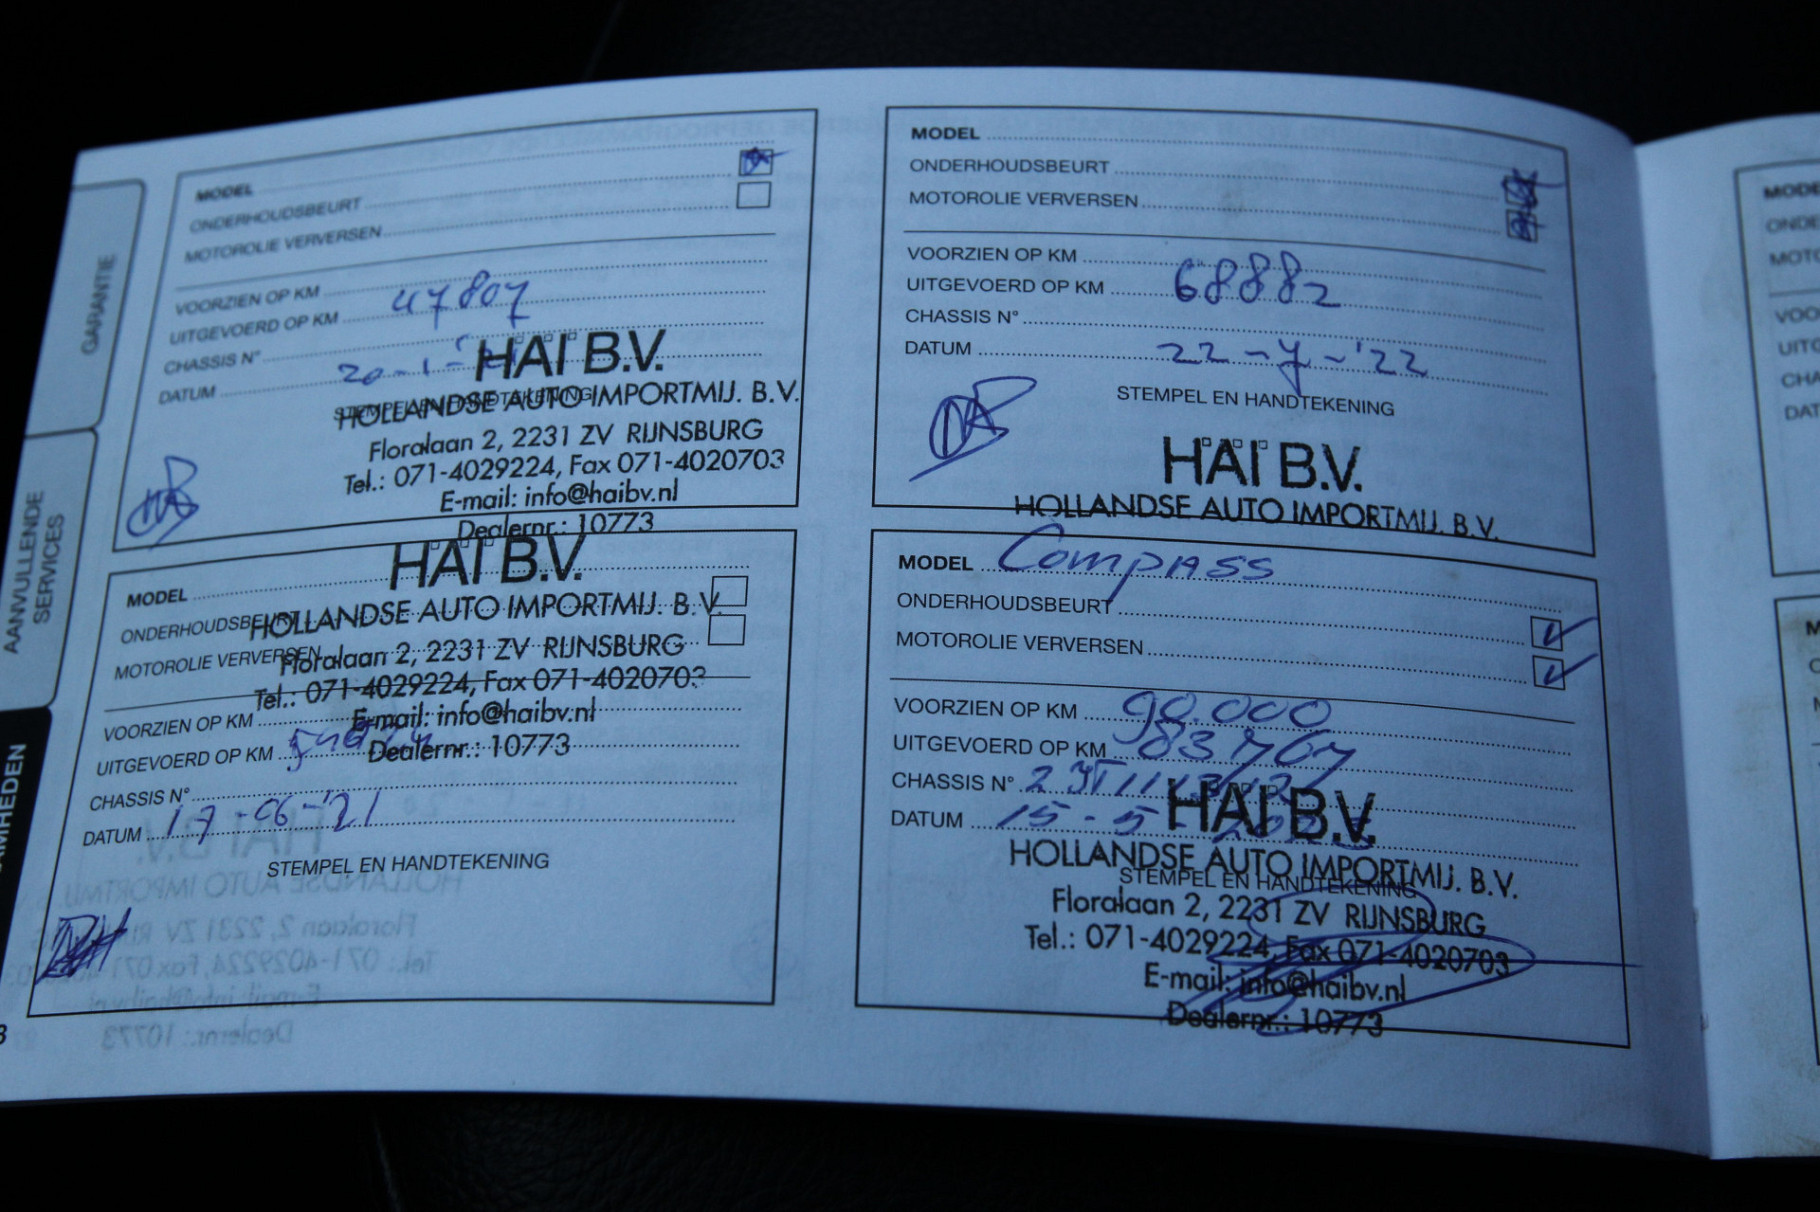 GARANTIE
AANVULLENDE
SERVICES
MODEL
ONDERHOUDSBEURT
MOTOROLIE VERVERSEN
VOORZIEN OP KM
UITGEVOERD OP KM 47807
CHASSIS N°
DATUM 20-1-'21
STEMPEL EN HANDTEKENING
HAI B.V.
HOLLANDSE AUTO IMPORTMIJ. B.V.
Floralaan 2, 2231 ZV RIJNSBURG
Tel.: 071-4029224, Fax 071-4020703
E-mail: info@haibv.nl
Dealernr.: 10773
MODEL
ONDERHOUDSBEURT
MOTOROLIE VERVERSEN
VOORZIEN OP KM
UITGEVOERD OP KM 68882
CHASSIS N°
DATUM 22-7-'22
STEMPEL EN HANDTEKENING
HAI B.V.
HOLLANDSE AUTO IMPORTMIJ. B.V.
HAI B.V.
MODEL
HOLLANDSE AUTO IMPORTMIJ. B.V.
ONDERHOUDSBEURT
Floralaan 2, 2231 ZV RIJNSBURG
MOTOROLIE VERVERSEN
Tel.: 071-4029224, Fax 071-4020703
E-mail: info@haibv.nl
VOORZIEN OP KM
Dealernr.: 10773
UITGEVOERD OP KM
CHASSIS N°
DATUM 17-06-'21
STEMPEL EN HANDTEKENING
MODEL Compass
ONDERHOUDSBEURT
MOTOROLIE VERVERSEN
VOORZIEN OP KM 90.000
UITGEVOERD OP KM 83767
CHASSIS N°
DATUM 15-5-
HAI B.V.
HOLLANDSE AUTO IMPORTMIJ. B.V.
STEMPEL EN HANDTEKENING
Floralaan 2, 2231 ZV RIJNSBURG
Tel.: 071-4029224, Fax 071-4020703
E-mail: info@haibv.nl
Dealernr.: 10773